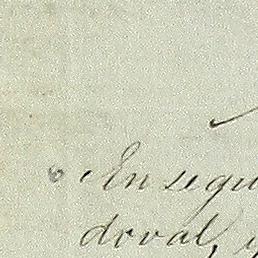 En segu
doval, y